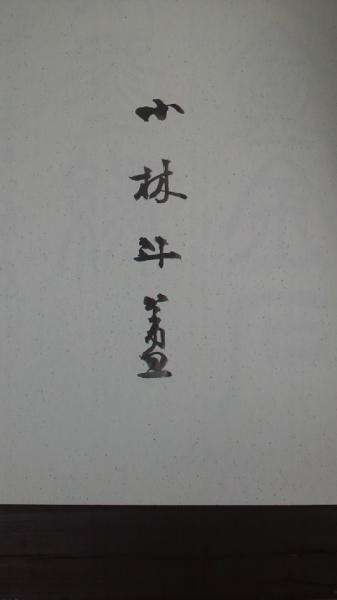 小林斗盦